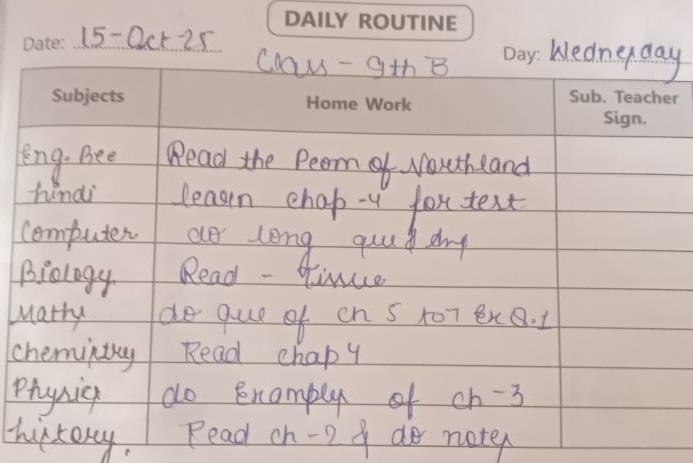 DAILY ROUTINE
Date: 15-Oct-25
Class - 9th B
Day: Wednesday
Subjects Home Work Sub. Teacher Sign.
Eng. Bee Read the Peom of Northland
hindi learn chap-4 for test
Computer do long que & ans
Biology Read - tissue
Maths do que of ch 5 to 7 Ex 8.1
Chemistry Read chap 4
Physics do Examples of ch-3
history. Read ch-2 & do notes